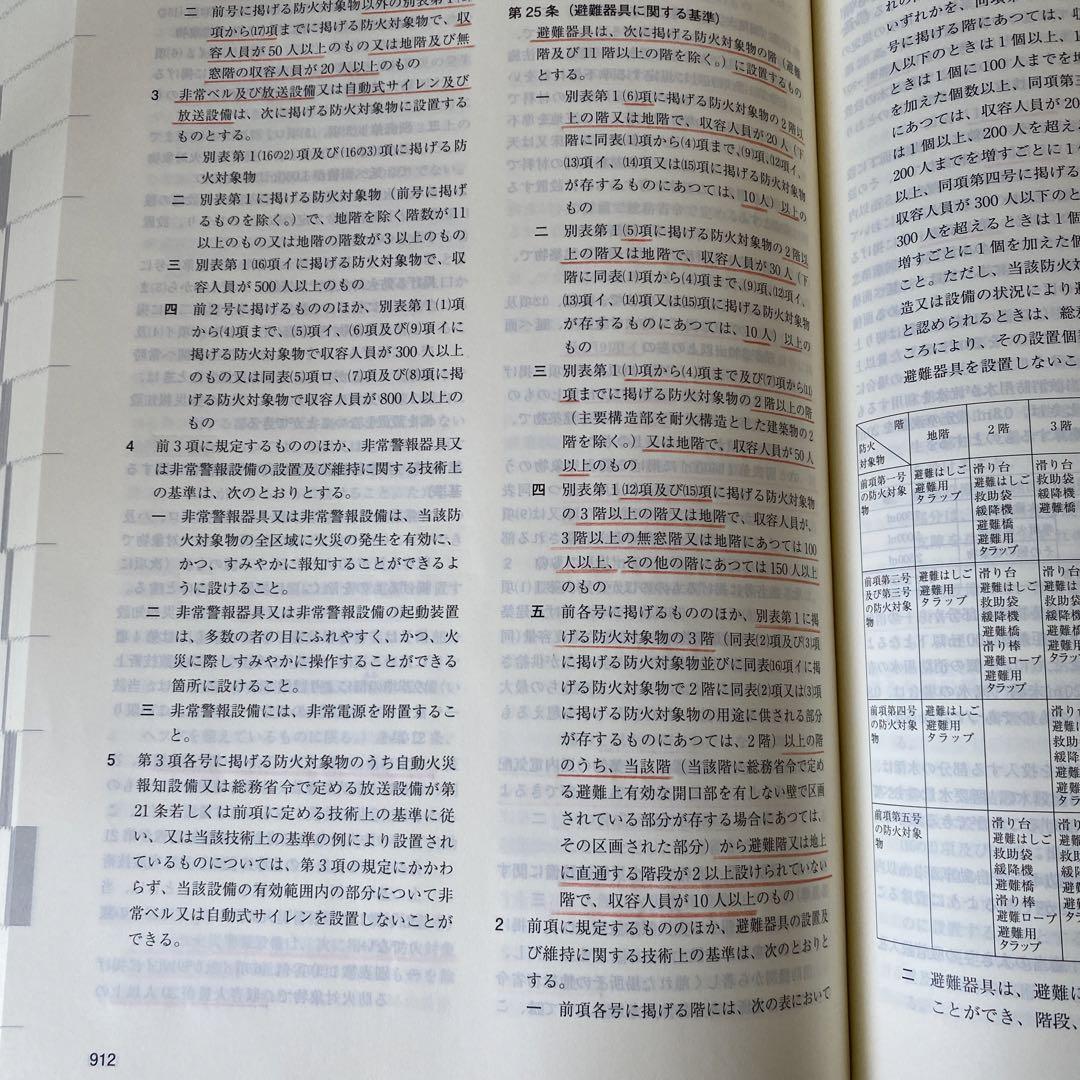 二 前号に掲げる防火対象物以外の別表第1
項から⒄項までに掲げる防火対象物で、収
容人員が50人以上のもの又は地階及び無
窓階の収容人員が20人以上のもの
3 非常ベル及び放送設備又は自動式サイレン及び
放送設備は、次に掲げる防火対象物に設置する
ものとする。
一 別表第1(16の2)項及び(16の3)項に掲げる防
火対象物
二 別表第1に掲げる防火対象物（前号に掲げ
るものを除く。）で、地階を除く階数が11
以上のもの又は地階の階数が3以上のもの
三 別表第1⒃項イに掲げる防火対象物で、収
容人員が500人以上のもの
四 前2号に掲げるもののほか、別表第1⑴項
から⑷項まで、⑸項イ、⑹項及び⑼項イに
掲げる防火対象物で収容人員が300人以上
のもの又は同表⑸項ロ、⑺項及び⑻項に掲
げる防火対象物で収容人員が800人以上の
もの
4 前3項に規定するもののほか、非常警報器具又
は非常警報設備の設置及び維持に関する技術上
の基準は、次のとおりとする。
一 非常警報器具又は非常警報設備は、当該防
火対象物の全区域に火災の発生を有効に、
かつ、すみやかに報知することができるよ
うに設けること。
二 非常警報器具又は非常警報設備の起動装置
は、多数の者の目にふれやすく、かつ、火
災に際しすみやかに操作することができる
箇所に設けること。
三 非常警報設備には、非常電源を附置するこ
と。
5 第3項各号に掲げる防火対象物のうち自動火災
報知設備又は総務省令で定める放送設備が第
21条若しくは前項に定める技術上の基準に従
い、又は当該技術上の基準の例により設置され
ているものについては、第3項の規定にかかわ
らず、当該設備の有効範囲内の部分について非
常ベル又は自動式サイレンを設置しないことが
できる。
912
第25条（避難器具に関する基準）
避難器具は、次に掲げる防火対象物の階（避難
階及び11階以上の階を除く。）に設置するもの
とする。
一 別表第1⑹項に掲げる防火対象物の2階以
上の階又は地階で、収容人員が20人（下
階に同表⑴項から⑷項まで、⑼項、⑿項イ、
⒀項イ、⒁項又は⒂項に掲げる防火対象物
が存するものにあつては、10人）以上の
もの
二 別表第1⑸項に掲げる防火対象物の2階以
上の階又は地階で、収容人員が30人（下
階に同表⑴項から⑷項まで、⑼項、⑿項イ、
⒀項イ、⒁項又は⒂項に掲げる防火対象物
が存するものにあつては、10人）以上の
もの
三 別表第1⑴項から⑷項まで及び⑺項から⑾
項までに掲げる防火対象物の2階以上の階
（主要構造部を耐火構造とした建築物の2
階を除く。）又は地階で、収容人員が50人
以上のもの
四 別表第1⑿項及び⒂項に掲げる防火対象物
の3階以上の階又は地階で、収容人員が、
3階以上の無窓階又は地階にあつては100
人以上、その他の階にあつては150人以上
のもの
五 前各号に掲げるもののほか、別表第1に掲
げる防火対象物の3階（同表⑵項及び⑶項
に掲げる防火対象物並びに同表⒃項イに掲
げる防火対象物で2階に同表⑵項又は⑶項
に掲げる防火対象物の用途に供される部分
が存するものにあつては、2階）以上の階
のうち、当該階（当該階に総務省令で定め
る避難上有効な開口部を有しない壁で区画
されている部分が存する場合にあつては、
その区画された部分）から避難階又は地上
に直通する階段が2以上設けられていない
階で、収容人員が10人以上のもの
2 前項に規定するもののほか、避難器具の設置及
び維持に関する技術上の基準は、次のとおりと
する。
一 前項各号に掲げる階には、次の表において
いずれかを、同項第
号に掲げる階にあつては、収
人以下のときは1個以上、1
ときは1個に100人までを増
を加えた個数以上、同項第三
にあつては、収容人員が20
は1個以上、200人を超え
200人までを増すごとに1
以上、同項第四号に掲げる
収容人員が300人以下のと
300人を超えるときは1個
増すごとに1個を加えた個
こと。ただし、当該防火対
造又は設備の状況により避
と認められるときは、総務
ころにより、その設置個数
避難器具を設置しないこ
階
防火
対象物
地階
2階
3階
前項第一号
の防火対象
物
避難はしご
避難用
タラップ
滑り台
避難はしご
救助袋
緩降機
避難橋
避難用
タラップ
滑り台
救助袋
緩降機
避難橋
前項第二号
及び第三号
の防火対象
物
避難はしご
避難用
タラップ
滑り台
避難はしご
救助袋
緩降機
避難橋
滑り棒
避難ロープ
避難用
タラップ
滑り台
避難は
救助袋
緩降機
避難橋
避難用
タラッ
前項第四号
の防火対象
物
避難はしご
避難用
タラップ
滑り台
避難は
救助
緩降
避難
避難
タラ
前項第五号
の防火対象
物
滑り台
避難はしご
救助袋
緩降機
避難橋
滑り棒
避難ロープ
避難用
タラップ
二 避難器具は、避難に
ことができ、階段、